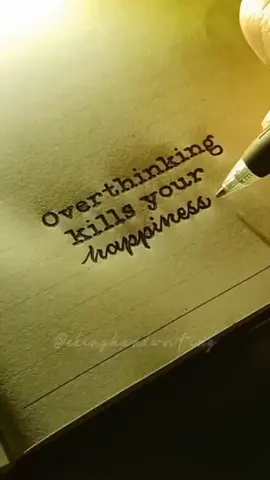 Overthinking
kills your
happiness